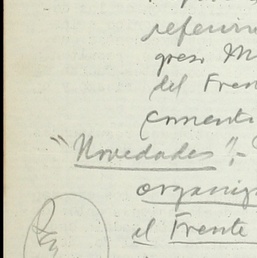 referim
greso M
del Fren
comenti
"Novedades",-
organiz
el Frente